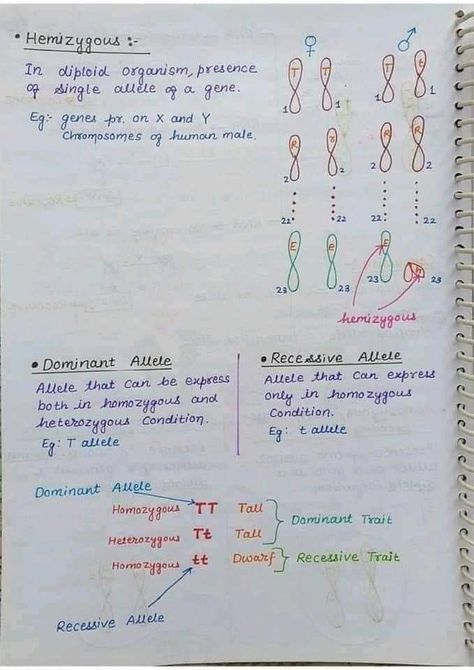 • Hemizygous :-
In diploid organism, presence
of single allele of a gene.
Eg:- genes pr. on X and Y
Chromosomes of human male.
♀ ♂
T T T t
1 1 1 1
R r R R
2 2 2 2
22 22 22 22
E e E h
23 23 23 23
hemizygous
• Dominant Allele
Allele that can be express
both in homozygous and
heterozygous Condition.
Eg: T allele
• Recessive Allele
Allele that can express
only in homozygous
Condition.
Eg: t allele
Dominant Allele
Homozygous TT Tall
Heterozygous Tt Tall
Dominant Trait
Homozygous tt Dwarf } Recessive Trait
Recessive Allele